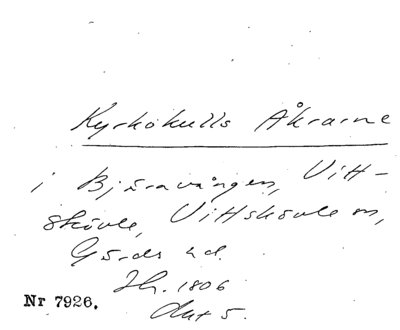 Kyrkokulls Åkrarne
i Bjäravången, Vitt-
skövle, Vittskövle sn,
Gärds hd.
Hr. 1806
Akt 5.
Nr 7926.